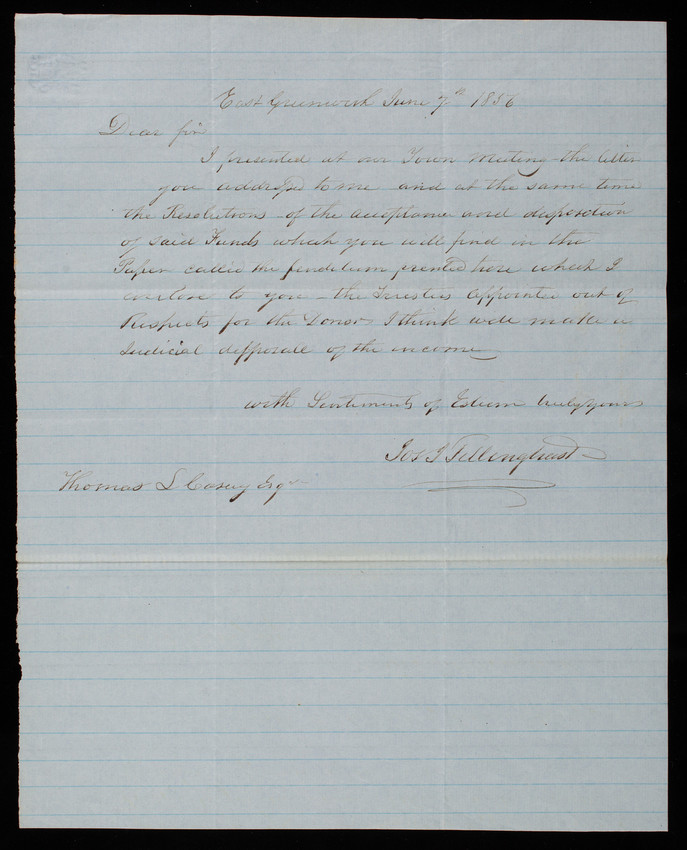 East Greenwich June 7th 1856
Dear Sir
I presented at our Town meeting the letter
you addressed to me and at the same time
the Resolutions of the acceptance and disposition
of said Funds which you will find in the
Paper called the pendulum printed here which I
enclose to you - the Trusties appointed out of
Respects for the Donor I think will make a
Judicial of the income
with Sentiments of Esteem truly yours
Jos J Tillinghast
Thomas L Casey Esqr